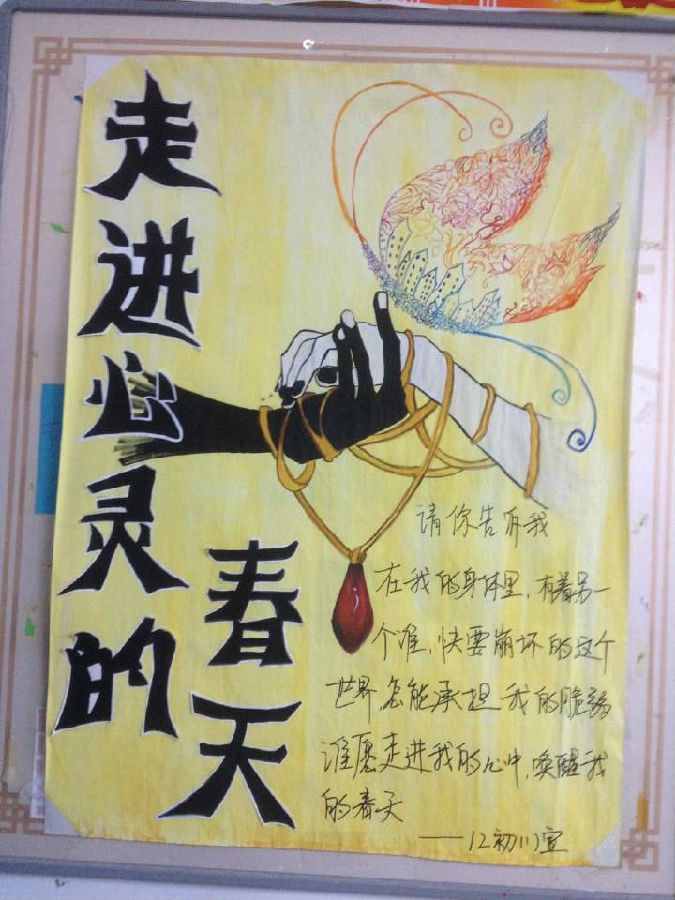 走进心灵的
春天
请你告诉我
在我的身体里，有着另一
个谁，快要崩坏的这个
世界怎能承担我的脆弱
谁愿走进我的心中，唤醒我
的春天
——12初川宜